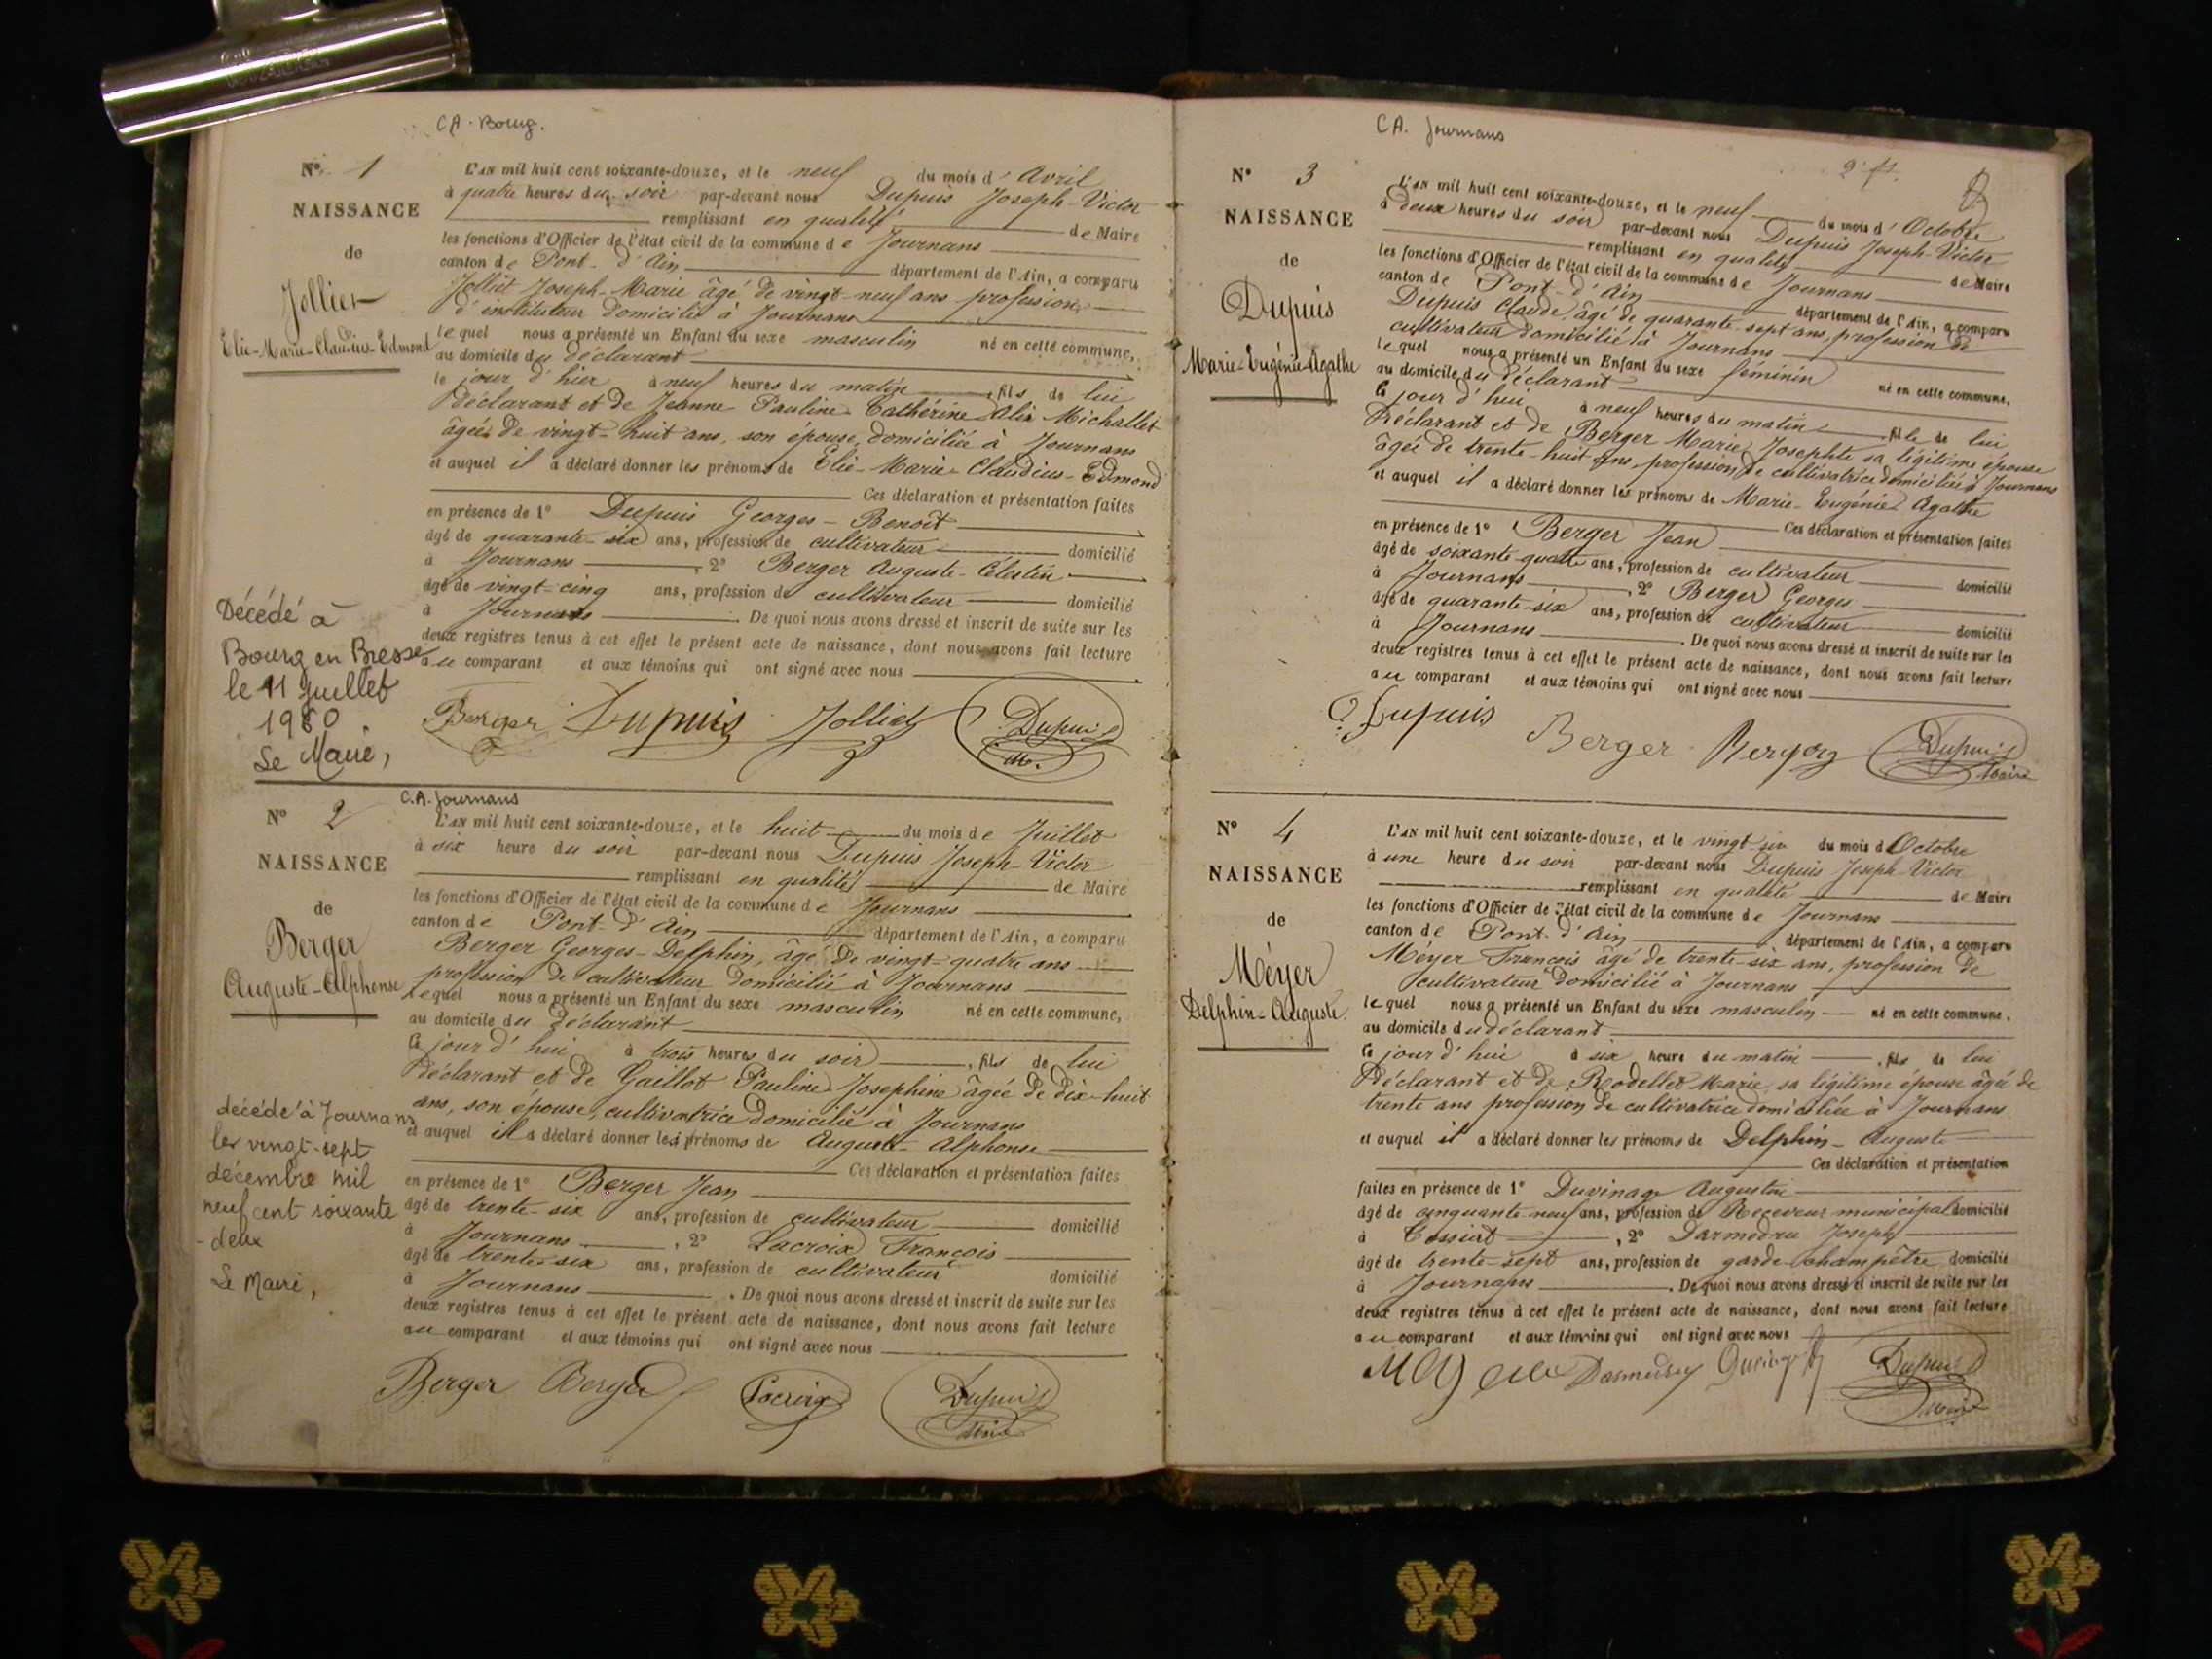 CA. Bourg.
N° 1
NAISSANCE
de
Jolliet
Elie-Marie-Claudius-Edmond
L'AN mil huit cent soixante-douze, et le neuf du mois d' Avril
à quatre heures du soir par-devant nous Dupuis Joseph-Victor
remplissant en qualité de Maire
les fonctions d'Officier de l'état civil de la commune de Journans
canton de Pont-d'Ain département de l'Ain, a comparu
Jolliet Joseph-Marie âgé de vingt-neuf ans profession
d'instituteur domicilié à Journans
lequel nous a présenté un Enfant du sexe masculin né en cette commune,
au domicile du déclarant
le jour d'hier à neuf heures du matin, fils de lui
déclarant et de Jeanne Pauline Cathérine Alix Michallet
âgée de vingt-huit ans, son épouse, domiciliée à Journans
et auquel il a déclaré donner les prénoms de Elie-Marie-Claudius-Edmond
Ces déclaration et présentation faites
en présence de 1° Dupuis Georges-Benoît
âgé de quarante-six ans, profession de cultivateur domicilié
à Journans, 2° Berger Auguste-Célestin
âgé de vingt-cinq ans, profession de cultivateur domicilié
à Journans. De quoi nous avons dressé et inscrit de suite sur les
deux registres tenus à cet effet le présent acte de naissance, dont nous avons fait lecture
au comparant et aux témoins qui ont signé avec nous
Berger Dupuis Jolliet Dupuis
M.
Décédé à
Bourg en Bresse
le 11 Juillet
1960
Le Maire,
C.A. Journans
N° 2
NAISSANCE
de
Berger
Auguste-Alphonse
L'AN mil huit cent soixante-douze, et le huit du mois de Juillet
à six heure du soir par-devant nous Dupuis Joseph-Victor
remplissant en qualité de Maire
les fonctions d'Officier de l'état civil de la commune de Journans
canton de Pont-d'Ain département de l'Ain, a comparu
Berger Georges-Delphin, âgé de vingt-quatre ans
profession de cultivateur domicilié à Journans
lequel nous a présenté un Enfant du sexe masculin né en cette commune,
au domicile du déclarant
ce jour d'hui à trois heures du soir, fils de lui
déclarant et de Gaillot Pauline Josephine âgée de dix-huit
ans, son épouse, cultivatrice domicilié à Journans
et auquel il a déclaré donner les prénoms de Auguste-Alphonse
Ces déclaration et présentation faites
en présence de 1° Berger Jean
âgé de trente-six ans, profession de cultivateur domicilié
à Journans, 2° Lacroix François
âgé de trente-six ans, profession de cultivateur domicilié
à Journans. De quoi nous avons dressé et inscrit de suite sur les
deux registres tenus à cet effet le présent acte de naissance, dont nous avons fait lecture
au comparant et aux témoins qui ont signé avec nous
Berger Berger Lacroix Dupuis
Maire
décédé à Journans
le vingt-sept
décembre mil
neuf cent soixante
-deux
Le Maire,
CA. Journans
N° 3
NAISSANCE
de
Dupuis
Marie-Eugénie-Agathe
L'AN mil huit cent soixante-douze, et le neuf du mois d' Octobre
à deux heures du soir par-devant nous Dupuis Joseph-Victor
remplissant en qualité de Maire
les fonctions d'Officier de l'état civil de la commune de Journans
canton de Pont-d'Ain département de l'Ain, a comparu
Dupuis Claude, âgé de quarante-sept ans, profession de
cultivateur domicilié à Journans
lequel nous a présenté un Enfant du sexe féminin né en cette commune,
au domicile du déclarant
ce jour d'hui à neuf heures du matin, fille de lui
déclarant et de Berger Marie Josephte sa légitime épouse
âgée de trente-huit ans, profession de cultivatrice domiciliée à Journans
et auquel il a déclaré donner les prénoms de Marie-Eugénie Agathe
Ces déclaration et présentation faites
en présence de 1° Berger Jean
âgé de soixante-quatre ans, profession de cultivateur domicilié
à Journans, 2° Berger Georges
âgé de quarante-six ans, profession de cultivateur domicilié
à Journans. De quoi nous avons dressé et inscrit de suite sur les
deux registres tenus à cet effet le présent acte de naissance, dont nous avons fait lecture
au comparant et aux témoins qui ont signé avec nous
C. Dupuis Berger Berger Dupuis
Maire
N° 4
NAISSANCE
de
Méyer
Delphin-Auguste
L'AN mil huit cent soixante-douze, et le vingt-six du mois d'Octobre
à une heure du soir par-devant nous Dupuis Joseph-Victor
remplissant en qualité de Maire
les fonctions d'Officier de l'état civil de la commune de Journans
canton de Pont-d'Ain département de l'Ain, a comparu
Méyer François âgé de trente-six ans, profession de
cultivateur domicilié à Journans
lequel nous a présenté un Enfant du sexe masculin né en cette commune,
au domicile du déclarant
ce jour d'hui à six heure du matin, fils de lui
déclarant et de Rodellet Marie sa légitime épouse âgée de
trente ans profession de cultivatrice domiciliée à Journans
et auquel il a déclaré donner les prénoms de Delphin-Auguste
Ces déclaration et présentation
faites en présence de 1° Duvinage Augustin
âgé de cinquante-neuf ans, profession de Receveur municipal domicilié
à, 2° Darmedru Joseph
âgé de trente-sept ans, profession de garde-champêtre domicilié
à Journans. De quoi nous avons dressé et inscrit de suite sur les
deux registres tenus à cet effet le présent acte de naissance, dont nous avons fait lecture
au comparant et aux témoins qui ont signé avec nous
Dupuis
Maire